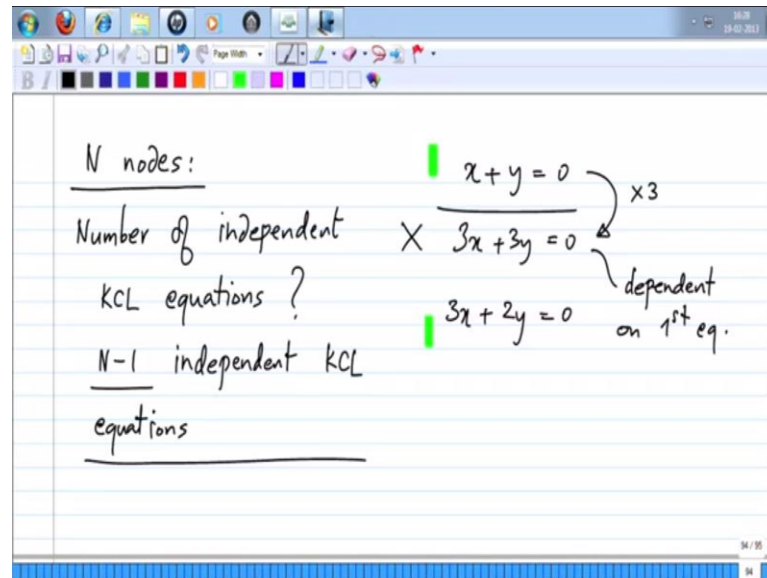 16:28
19-02-2013
Page Width
B I
N nodes:
Number of independent
KCL equations ?
N-1 independent KCL
equations
x + y = 0
×3
X 3x + 3y = 0
dependent
on 1st eq.
3x + 2y = 0
94 / 95
94